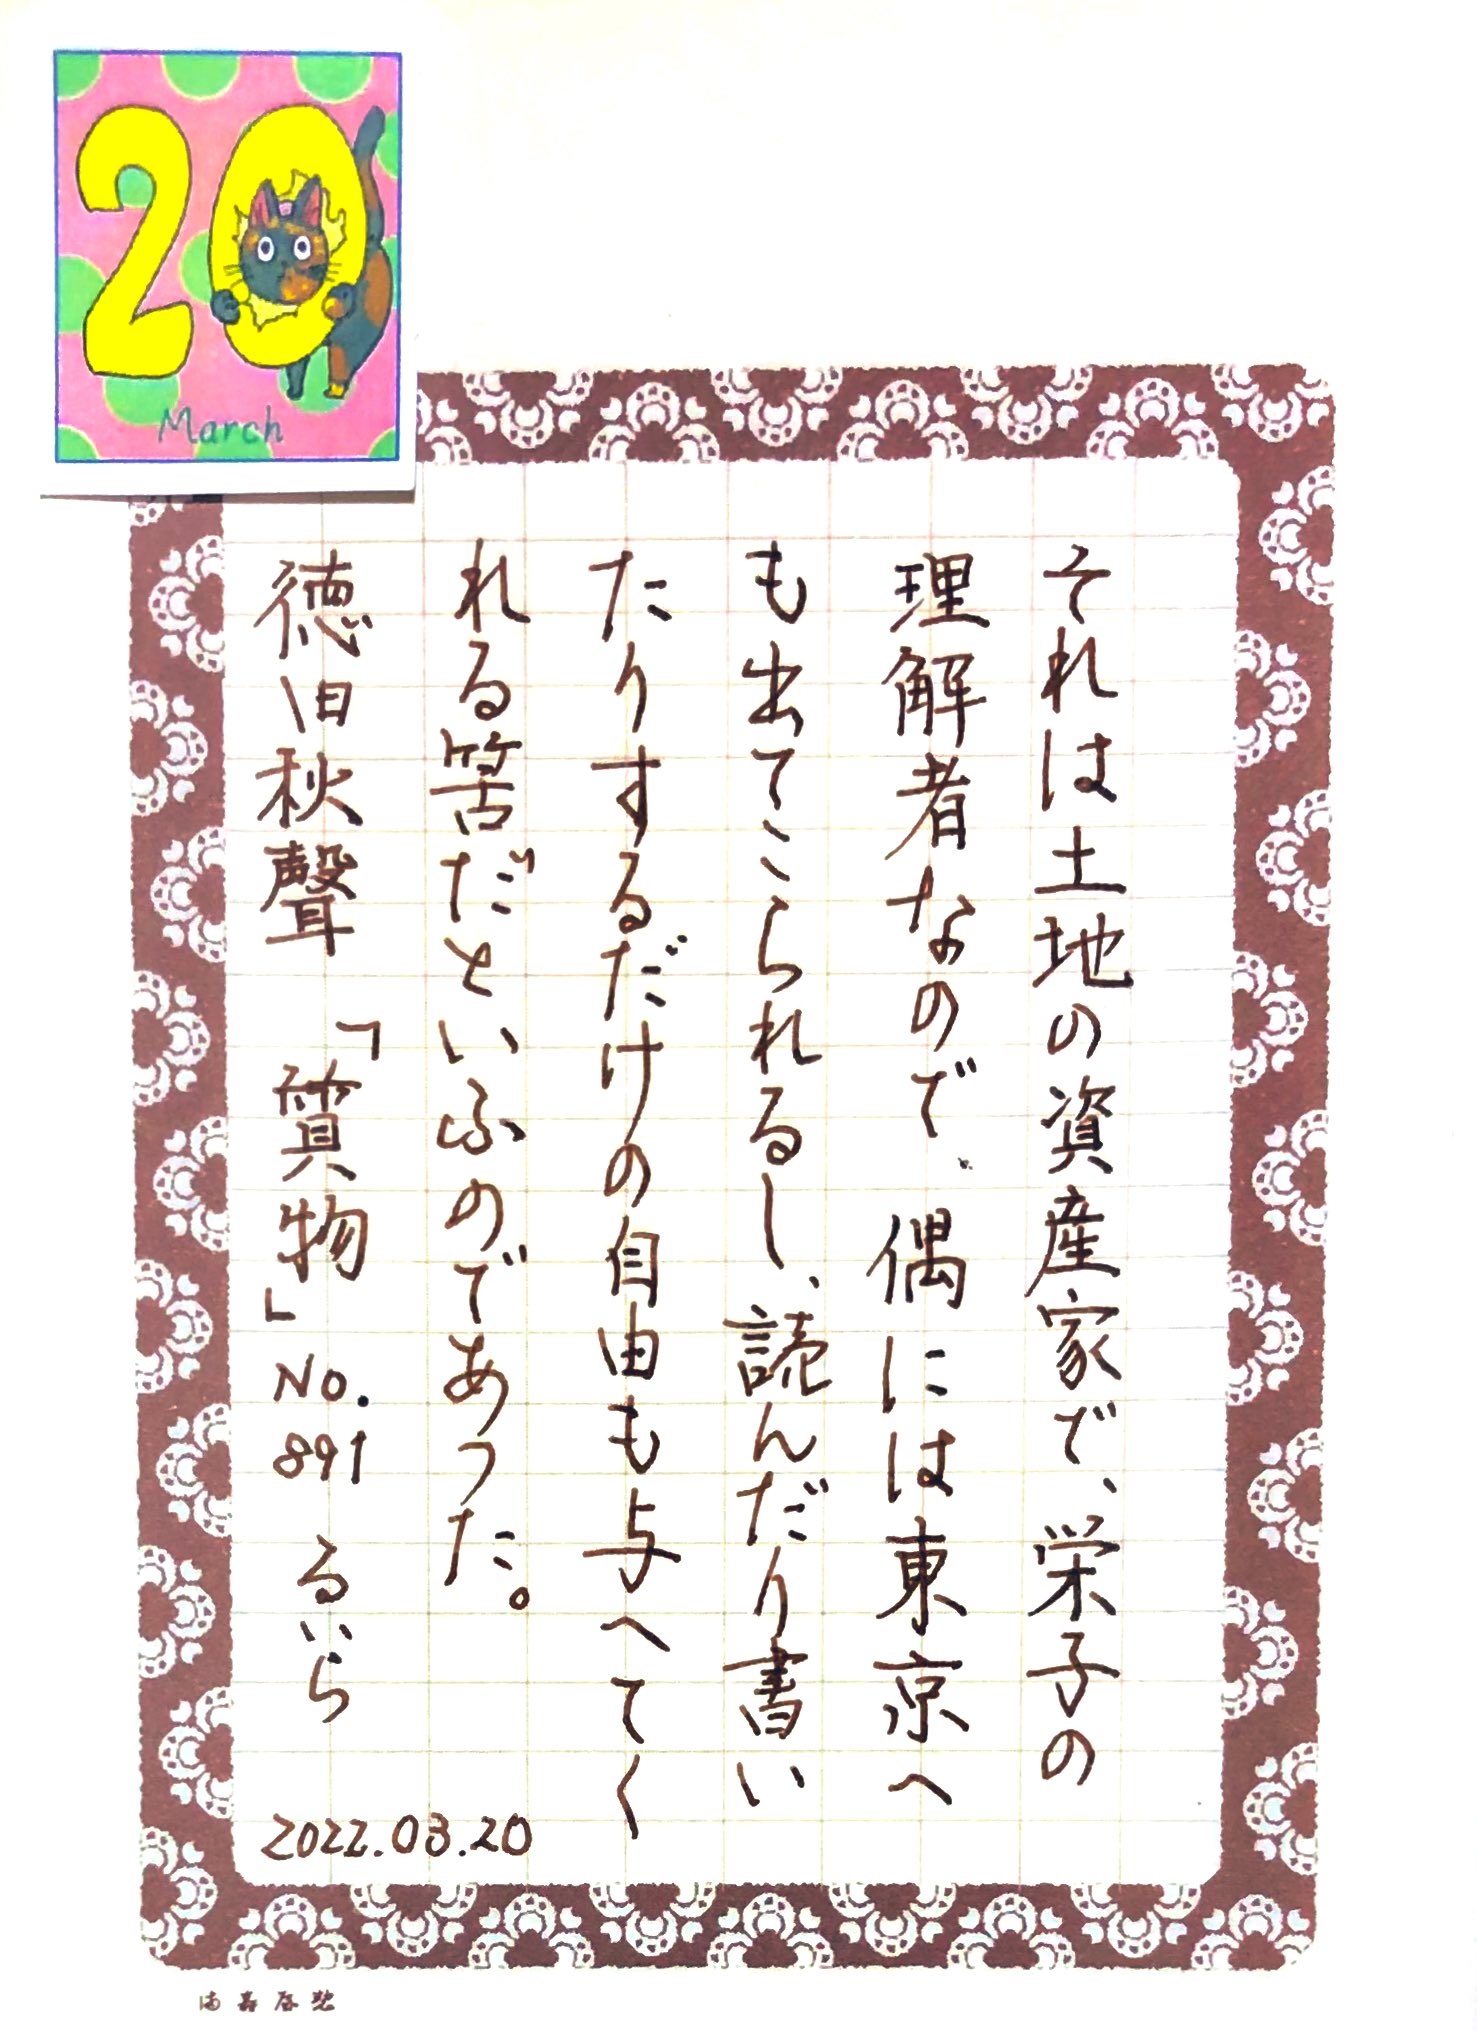 20
March
それは土地の資産家で、栄子の
理解者なので、偶には東京へ
も出てこられるし、読んだり書い
たりするだけの自由も与へてく
れる筈だといふのであつた。
徳田秋聲 「質物」No.891 るいら
2022.03.20